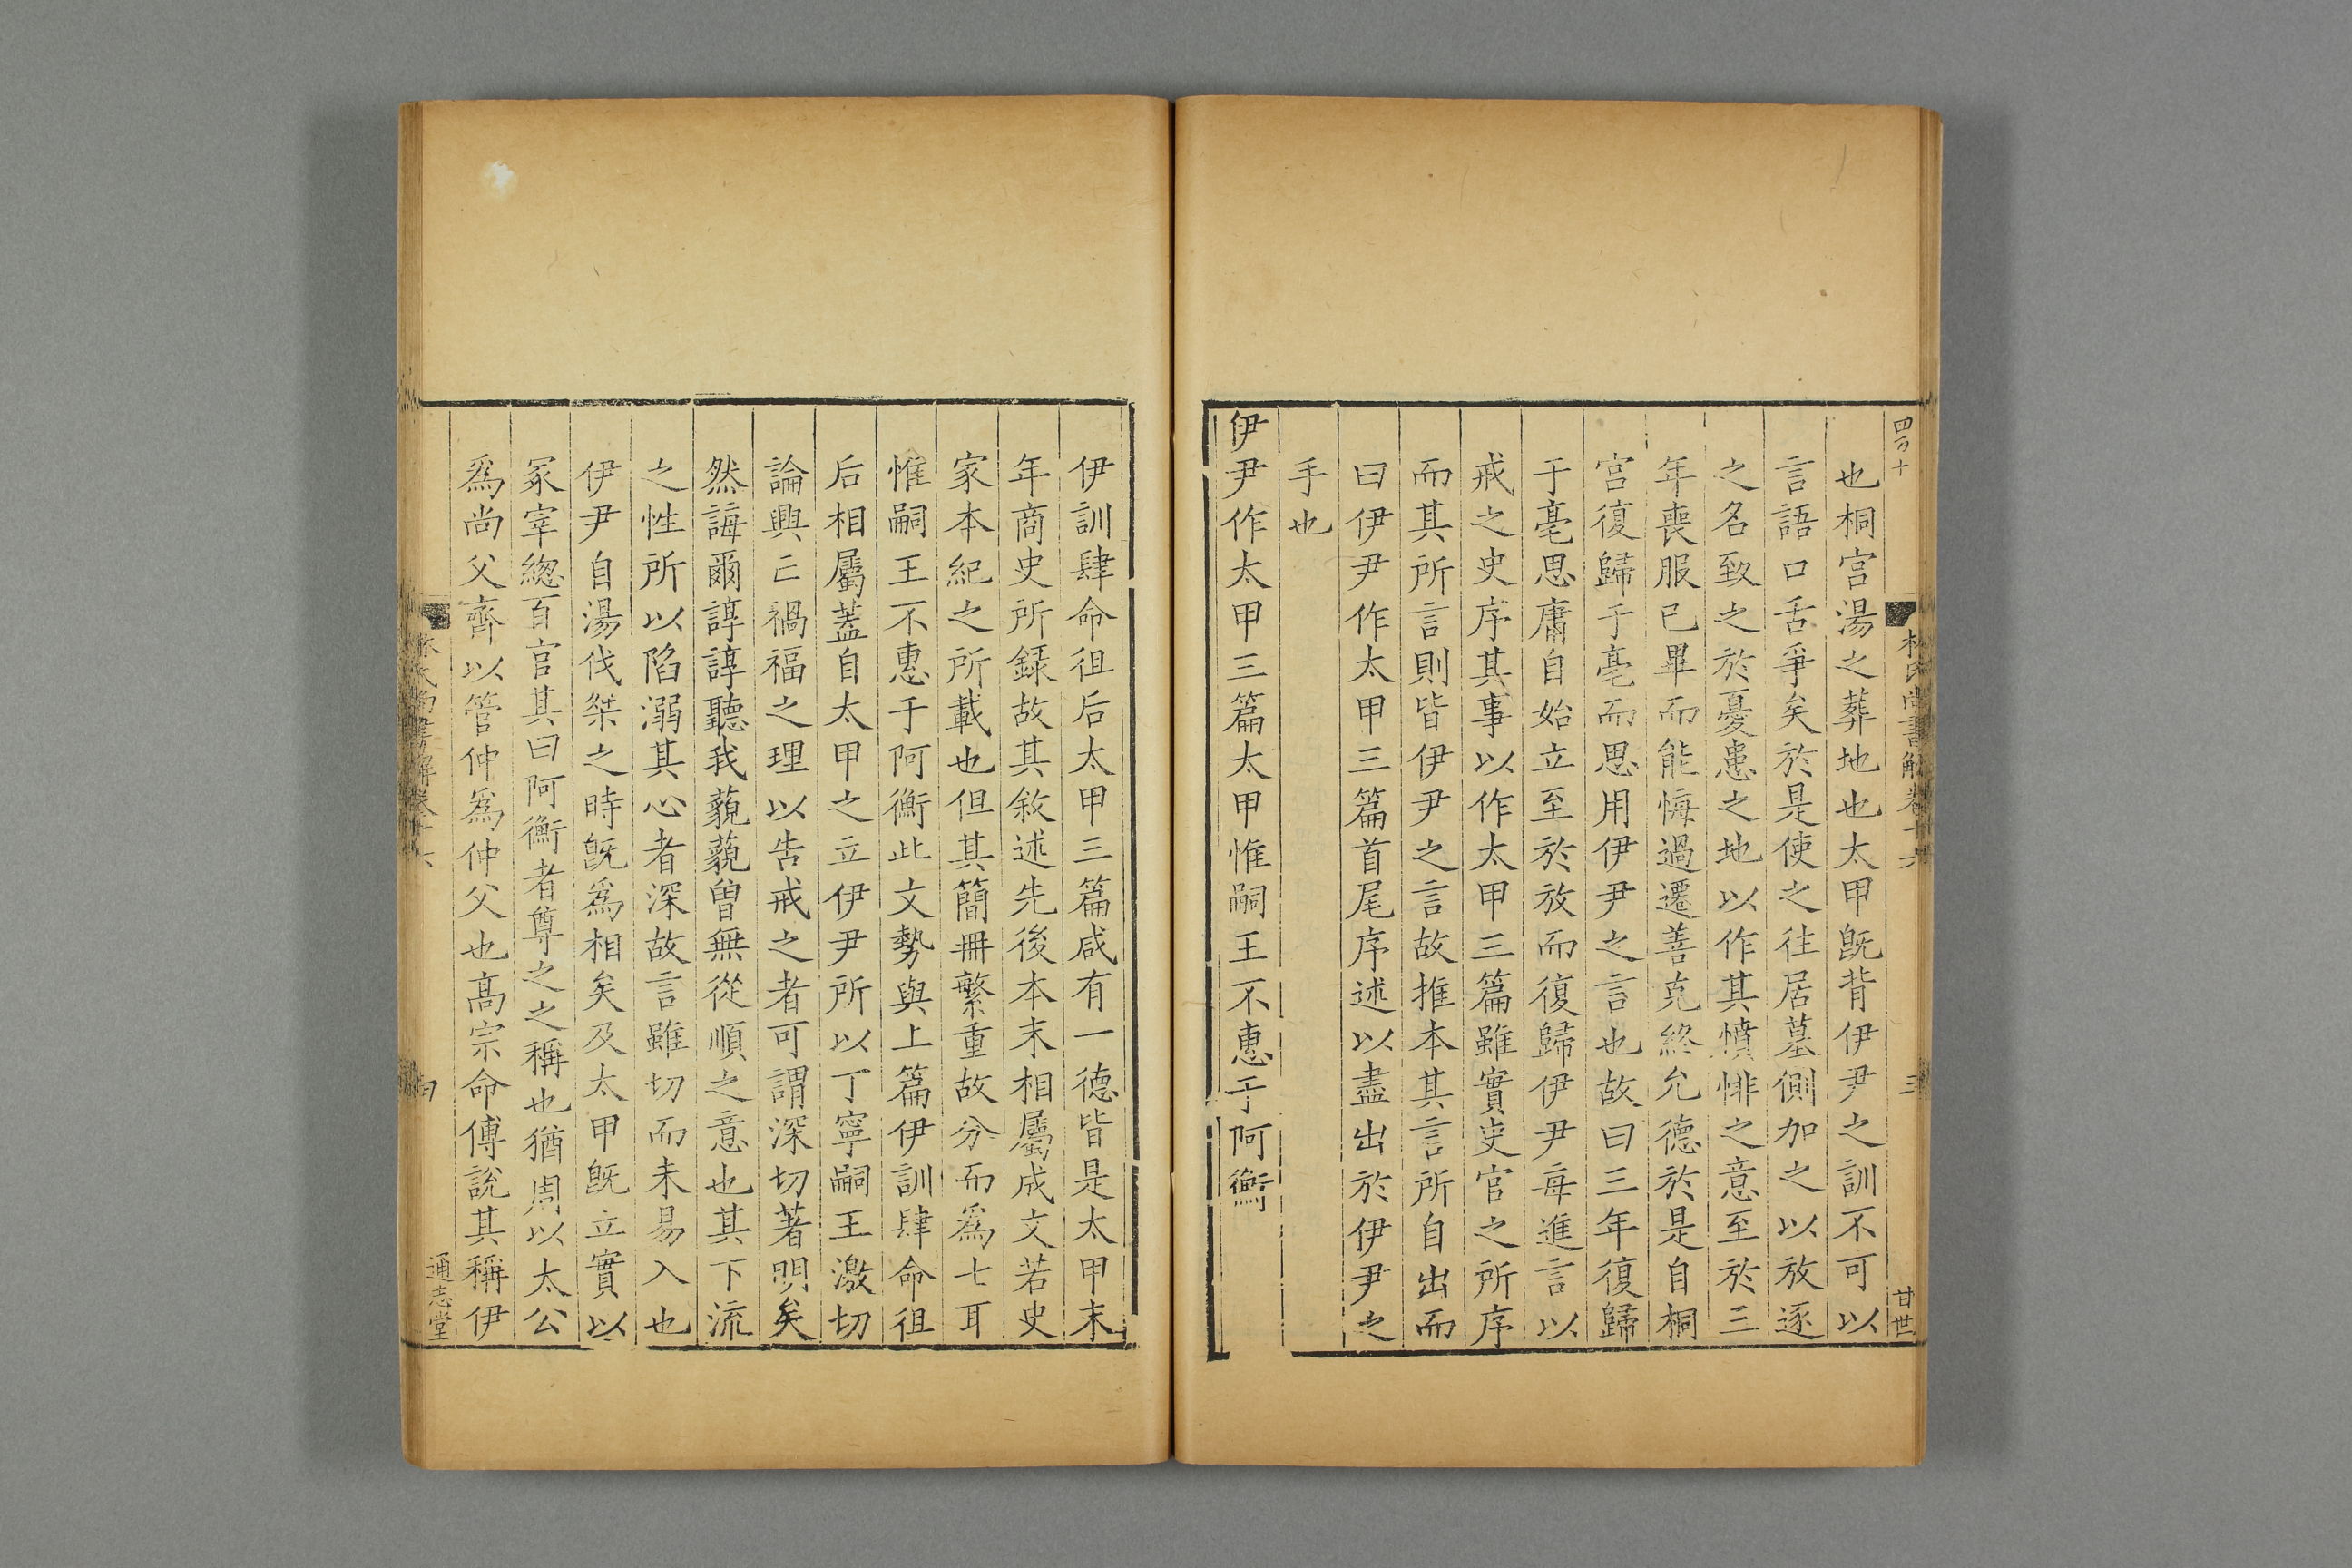 四百十
林氏尚書解卷十六
三
甘世
也桐宫湯之葬地也太甲旣背伊尹之訓不可以
言語口舌爭矣於是使之往居墓側加之以放逐
之名致之於憂患之地以作其憤悱之意至於三
年喪服已畢而能悔過遷善克終允德於是自桐
宫復歸于亳而思用伊尹之言也故曰三年復歸
于亳思庸自始立至於放而復歸伊尹每進言以
戒之史序其事以作太甲三篇雖實史官之所序
而其所言則皆伊尹之言故推本其言所自出而
曰伊尹作太甲三篇首尾序述以盡出於伊尹之
手也
伊尹作太甲三篇太甲惟嗣王不惠于阿衡
伊訓肆命徂后太甲三篇咸有一德皆是太甲末
年商史所録故其敘述先後本末相屬成文若史
家本紀之所載也但其簡冊繁重故分而爲七耳
惟嗣王不惠于阿衡此文勢與上篇伊訓肆命徂
后相屬蓋自太甲之立伊尹所以丁寧嗣王激切
論興亡禍福之理以告戒之者可謂深切著明矣
然誨爾諄諄聽我藐藐曾無從順之意也其下流
之性所以陷溺其心者深故言雖切而未易入也
伊尹自湯伐桀之時旣爲相矣及太甲旣立實以
冢宰緫百官其曰阿衡者尊之之稱也猶周以太公
爲尚父齊以管仲爲仲父也高宗命傅說其稱伊
林氏尚書解卷十六
四
通志堂